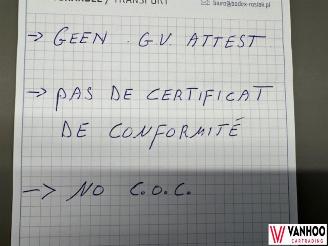 / TRANSPORT
biuro@bodex-roslak.pl
-> GEEN G.V. ATTEST
-> PAS DE CERTIFICAT
DE CONFORMITÉ
-> NO C.O.C.
VANHOO
CARTRADING